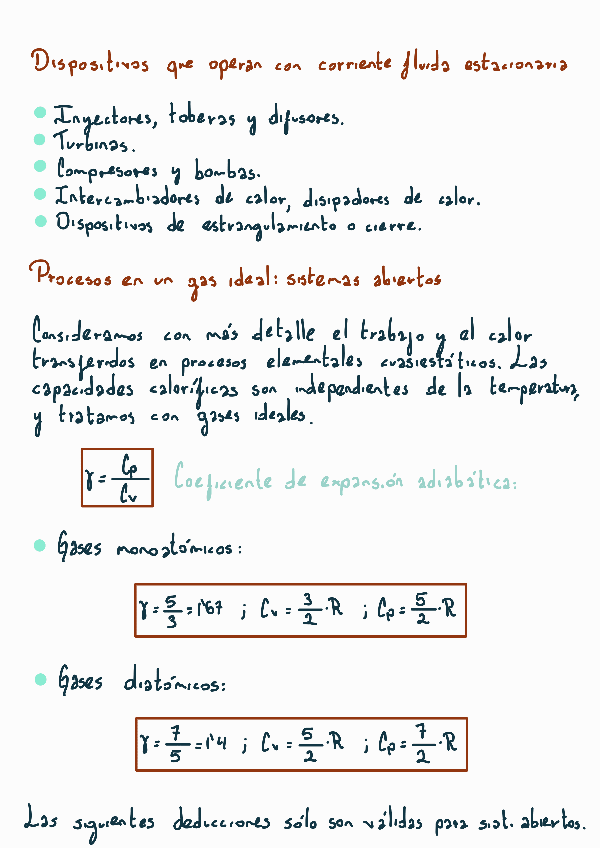 Dispositivos que operan con corriente fluida estacionaria
Inyectores, toberas y difusores.
Turbinas.
Compresores y bombas.
Intercambiadores de calor, disipadores de calor.
Dispositivos de estrangulamiento o cierre.
Procesos en un gas ideal: sistemas abiertos
Consideramos con más detalle el trabajo y el calor
transferidos en procesos elementales cuasiestáticos. Las
capacidades caloríficas son independientes de la temperatura,
y tratamos con gases ideales.
γ = Cp / Cv Coeficiente de expansión adiabática:
Gases monoatómicos:
γ = 5/3 = 1'67 ; Cv = 3/2 · R ; Cp = 5/2 · R
Gases diatómicos:
γ = 7/5 = 1'4 ; Cv = 5/2 · R ; Cp = 7/2 · R
Las siguientes deducciones sólo son válidas para sist. abiertos.